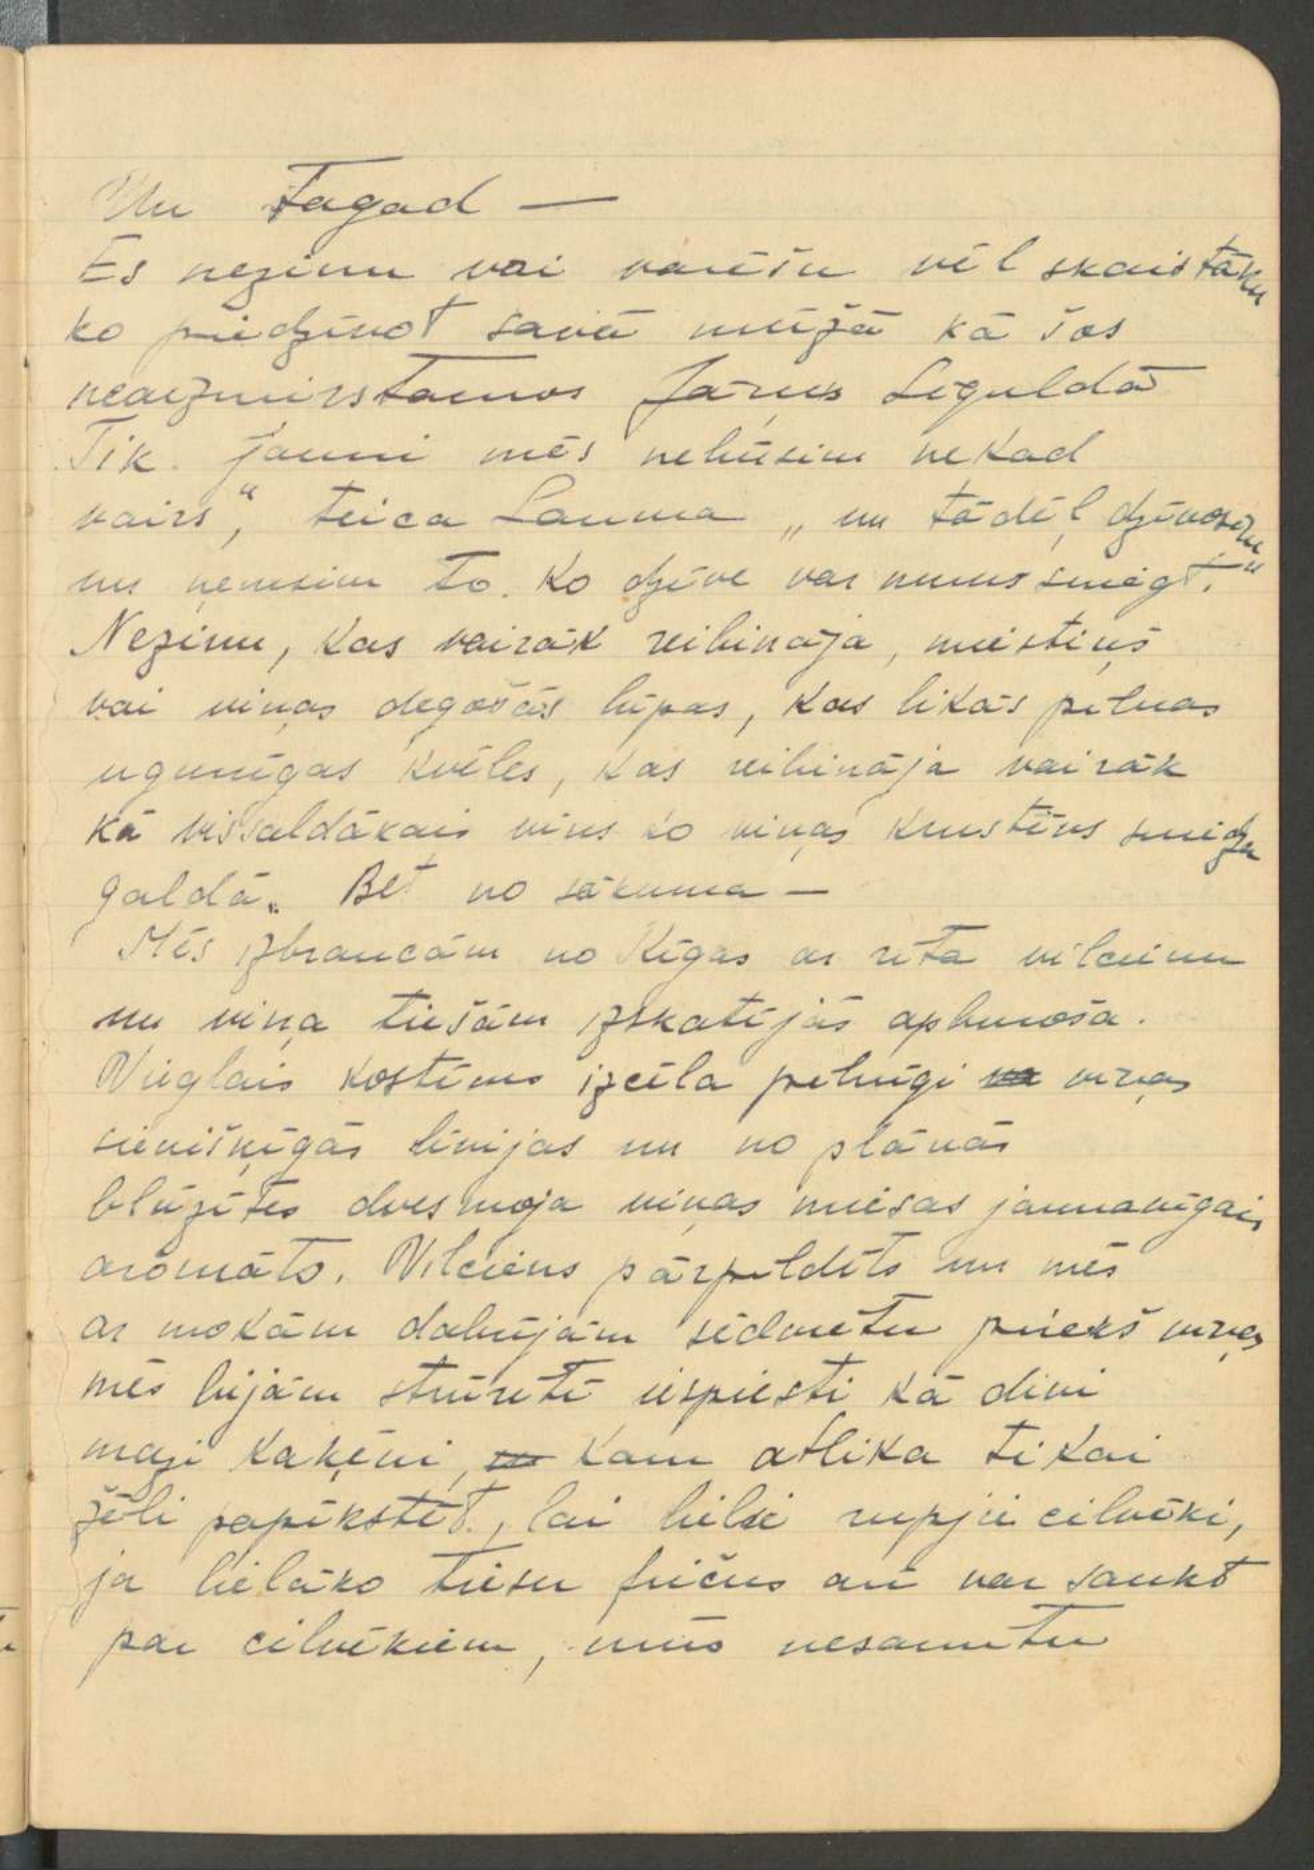 Un tagad —
Es nezinu vai varēšu vēl skaistāku
ko piedzīvot savā mūžā kā šos
neaizmirstamos Jāņus Siguldā
Tik jauni mēs nebūsim nekad
vairs", teica Lauma „un tādēļ dzīvosim
un ņemsim to. ko dzīve var mums sniegt."
Nezinu, kas vairāk reibināja, miestiņš
vai viņas degošās lūpas, kas likās pilnas
ugunīgas kvēles, kas reibināja vairāk
kā vissaldākais vīns ko viņas krustēvs sniedza
galdā. Bet no sākuma —
Mēs izbraucām no Rīgas ar rīta vilcienu
un viņa tiešām izskatījās apburoša.
Vieglais kostīms izcēla pilnīgi viņas
sievišķīgās līnijas un no plānās
blūzītes dvesmoja viņas miesas jaunavīgais
aromāts. Vilciens pārpildīts un mēs
ar mokām dabūjām sēdvietu priekš viņas
mēs bijām stūrītī iespiesti kā divi
mazi kaķēni, kam atlika tikai
žēli papīkstēt, lai lielie rupjie cilvēki,
ja lielāko tiesu fričus arī var saukt
par cilvēkiem, mūs nesamītu